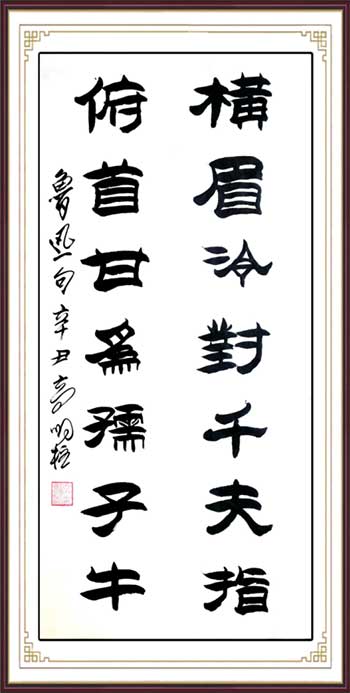 橫眉冷對千夫指
俯首甘爲孺子牛
魯迅句 辛丑 高明